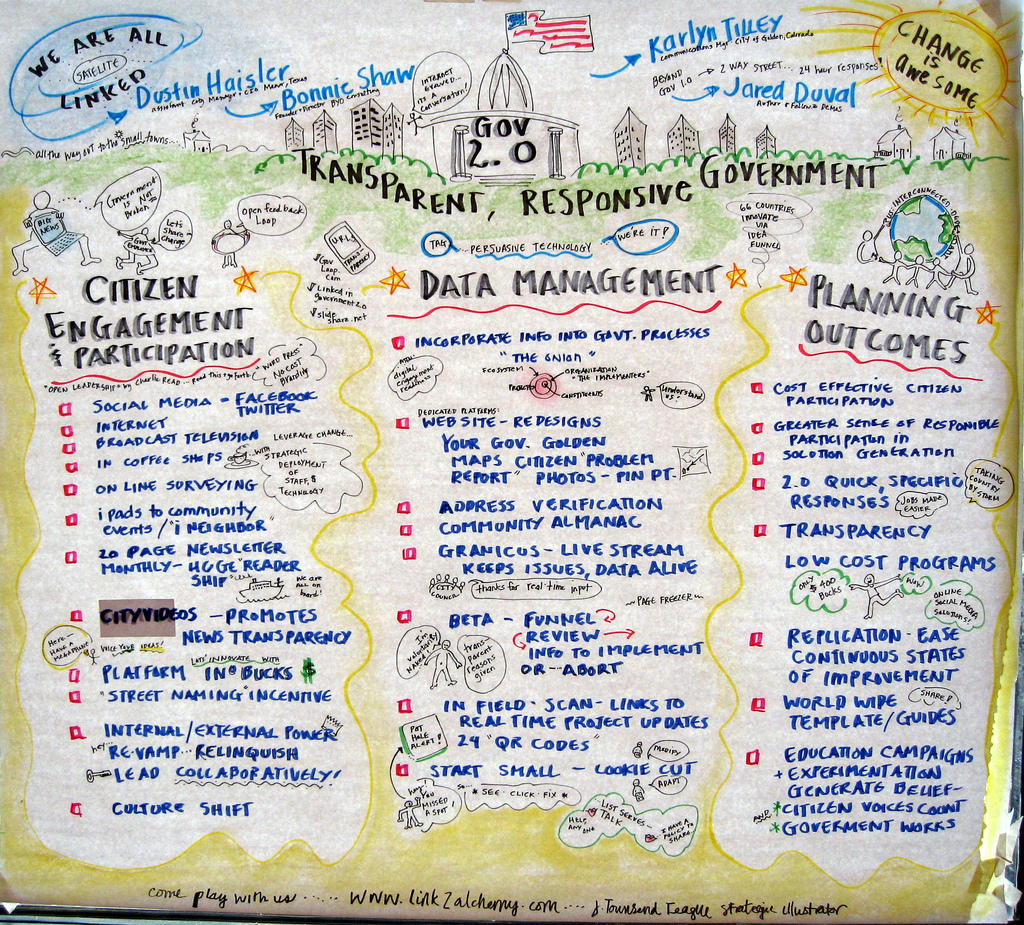 WE ARE ALL
SATELLITE
LINKED
Dustin Haisler
Assistant City Manager + CIO Manor, Texas
Bonnie Shaw
Founder + Director BYO Consulting
INTERNET
EVOLVED...
IT'S A
CONVERSATION!
Karlyn TILLEY
Communications Mgr. CITY of Golden, Colorado
BEYOND
GOV 1.0 → 2 WAY STREET... 24 hour responses
Jared Duval
Author + Fellow @ Demos
CHANGE
IS
AWESOME
all the way out to the small towns...
GOV
2.0
TRANSPARENT, RESPONSIVE GOVERNMENT
BIG
NEWS
Government
is Not
Broken
GOVT
EMPLOYEE
Let's
share =
change
Open feedback
Loop
URLS
TRANSPARENCY
Gov
Loop.
com
Linked in
government 2.0
slide
share.net
TAG
...PERSUASIVE TECHNOLOGY
WE'RE IT!
66 COUNTRIES
INNOVATE
VIA
IDEA
FUNNEL
INTERCONNECTED
CITIZEN
ENGAGEMENT
& PARTICIPATION
"OPEN LEADERSHIP" by Charlie READ... Read this + go forth!
"WORD PRESS"
NO COST
Branding
SOCIAL MEDIA - FACEBOOK
TWITTER
INTERNET
BROADCAST TELEVISION
IN COFFEE SHOPS
LEVERAGE CHANGE...
...WITH
STRATEGIC
DEPLOYMENT
OF
STAFF, $
TECHNOLOGY
ON LINE SURVEYING
iPads to COMMUNITY
events / "i NEIGHBOR"
20 PAGE NEWSLETTER
MONTHLY - HUGE "READER
SHIP"
We are
all on
board!
CITYVIDEOS - PROMOTES
NEWS TRANSPARENCY
Here-
HAVE A
MEGAPHONE!
VOICE YOUR IDEAS!
LET'S INNOVATE WITH
PLATFORM INO BUCKS $
"STREET NAMING" INCENTIVE
INTERNAL/EXTERNAL POWER
hey...
RE-VAMP... RELINQUISH
LEAD COLLABORATIVELY!
CULTURE SHIFT
DATA MANAGEMENT
INCORPORATE INFO INTO GOVT. PROCESSES
"THE ONION"
digital
engagement
readiness
ECOSYSTEM
ORGANIZATION
"THE IMPLEMENTERS"
PROJECT
CONSTITUENTS
Understand
us!
DEDICATED PLATFORMS:
WEB SITE - REDESIGNS
YOUR GOV. GOLDEN
MAPS CITIZEN "PROBLEM
REPORT" PHOTOS - PIN PT.
ADDRESS VERIFICATION
COMMUNITY ALMANAC
GRANICUS - LIVE STREAM
KEEPS ISSUES, DATA ALIVE
CITY
COUNCIL
thanks for real-time input
~ PAGE FREEZER ~
BETA - FUNNEL
REVIEW →
INFO TO IMPLEMENT
OR - ABORT
I'm
voluntarily
naked
trans-
parent
reasons
given
IN FIELD - SCAN - LINKS TO
REAL TIME PROJECT UPDATES
24 "QR CODES"
POT
HOLE
ALERT!
MODIFY
START SMALL - COOKIE CUT
ADAPT
so...
* SEE · CLICK · FIX *
hey!
YOU
MISSED
A SPOT
LIST SERVES -
TALK
HELP,
ANY
ONE
I HAVE A
POLICY TO
SHARE
PLANNING
OUTCOMES
COST EFFECTIVE CITIZEN
PARTICIPATION
GREATER SENSE OF RESPONSIBLE
PARTICIPATION IN
SOLUTION GENERATION
2.0 QUICK, SPECIFIC
RESPONSES
JOBS MADE
EASIER
TAKING
COUNTRY
BY STORM
TRANSPARENCY
LOW COST PROGRAMS
ONLY
$400
BUCKS
WOW
ONLINE
SOCIAL MEDIA
SOLUTIONS!
REPLICATION - EASE
CONTINUOUS STATES
OF IMPROVEMENT
SHARED
WORLD WIDE
TEMPLATE/GUIDES
EDUCATION CAMPAIGNS
+ EXPERIMENTATION
GENERATE BELIEF -
AND * CITIZEN VOICES COUNT
* GOVERMENT WORKS
come play with us ...... www.link2alchemy.com .... J. Townsend Teague strategic illustrator